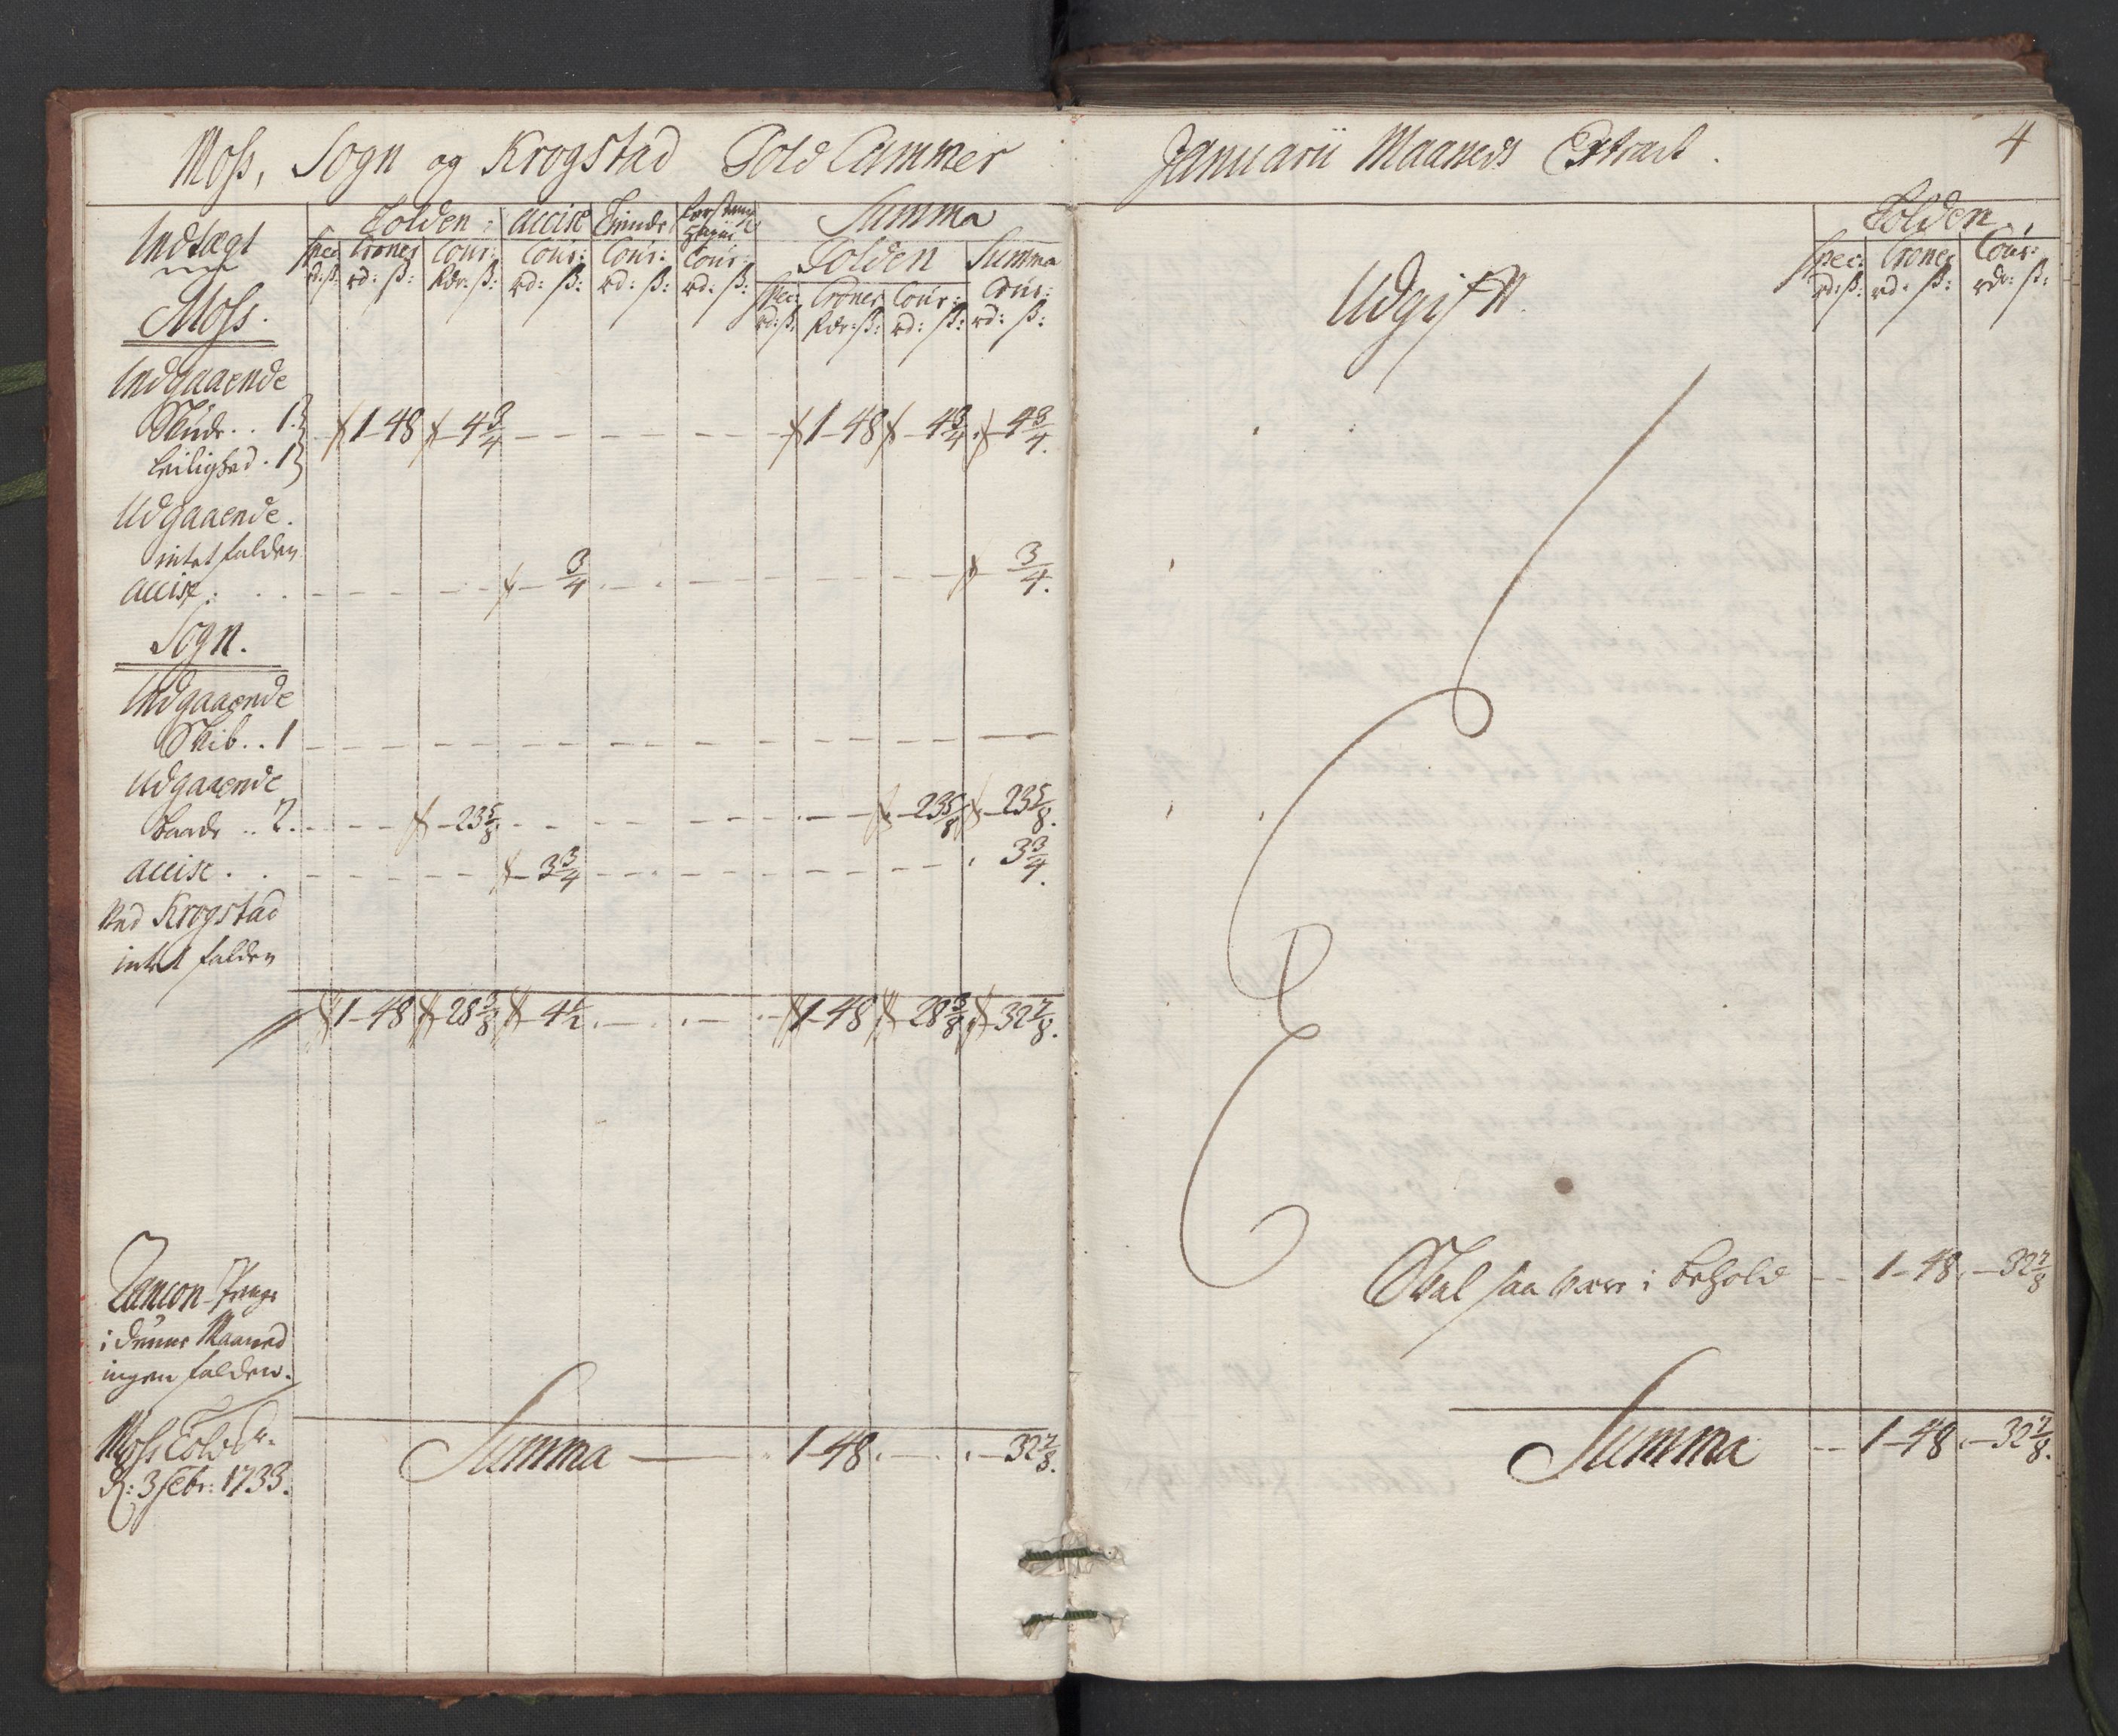 Moss, Sogn og Krogstad Told Cammer
Indtægt
Tolden:
accise
Tiende
Summa
Spec:
Croner
Cour:
Cour:
Cour:
Cour:
Tolden
Summa
rd: ß:
rd: ß:
Rdr: ß:
rd: ß:
rd: ß:
rd: ß:
Spec:
Croner
Cour:
Cour:
rd: ß:
Rdr: ß:
rd: ß:
rd: ß:
Moss.
Indgaaende
Skude . . 1
Leilighed . 1
1-48 4 3/4 1-48 4 3/4 4 3/4.
Udgaaende.
intet falden
accise. 3/4 3/4.
Sogn.
Indgaaende
Skib . . 1
Udgaaende
Baade . . 2. 23 5/8 23 5/8 23 5/8.
accise. 3 3/4 3 3/4.
Ved Krogstad
intet falden
1-48 28 3/8 4 1/2 1-48 28 3/8 32 7/8.
Penge
i denne Maaned
ingen falden.
Moss Told
d: 3 Febr: 1733.
Summa 1-48. 32 7/8.
Januarii Maaneds Extract.
4
Udgift.
Tolden
Spec:
Croner
Cour:
rd: ß:
rd: ß:
rdr: ß:
Skal saa være i behold 1-48. 32 7/8
Summa 1-48. 32 7/8.